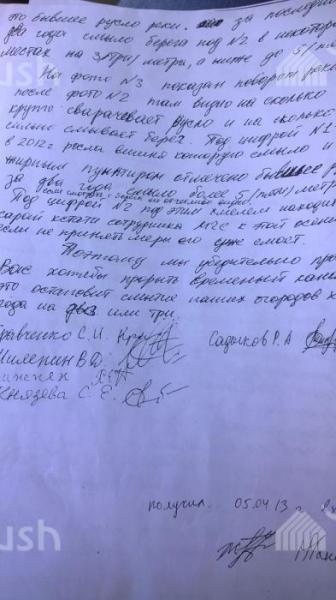 то бывшее русло реки. за последние
два года смыло берега под №2 в некотор
местах на 3/три/ метра, а ниже до 5/
На фото №3 показан поворот реки
после фото №2 там видно на сколько
круто сварачивает русло и на сколько
сильно смывает берег. Под цифрой №1
в 2012г росла вишня которую смыло и
жирным пунктиром отмечено бывшее
за два года смыло более 5/пяти/ метр
Под цифрой №2 под этим находит
сарай кстати сотрудника МЧС к этой осени
если не принять меры его уже смоет.
Поэтому мы убедительно про
Вас хотябы прорыть временный кана
это остановит смытие наших огородов
года на два или три.
равченко С.И.
Садыков Р.А
В.Д.
нязева С. Е.
получил 05.04 13
ush
ush